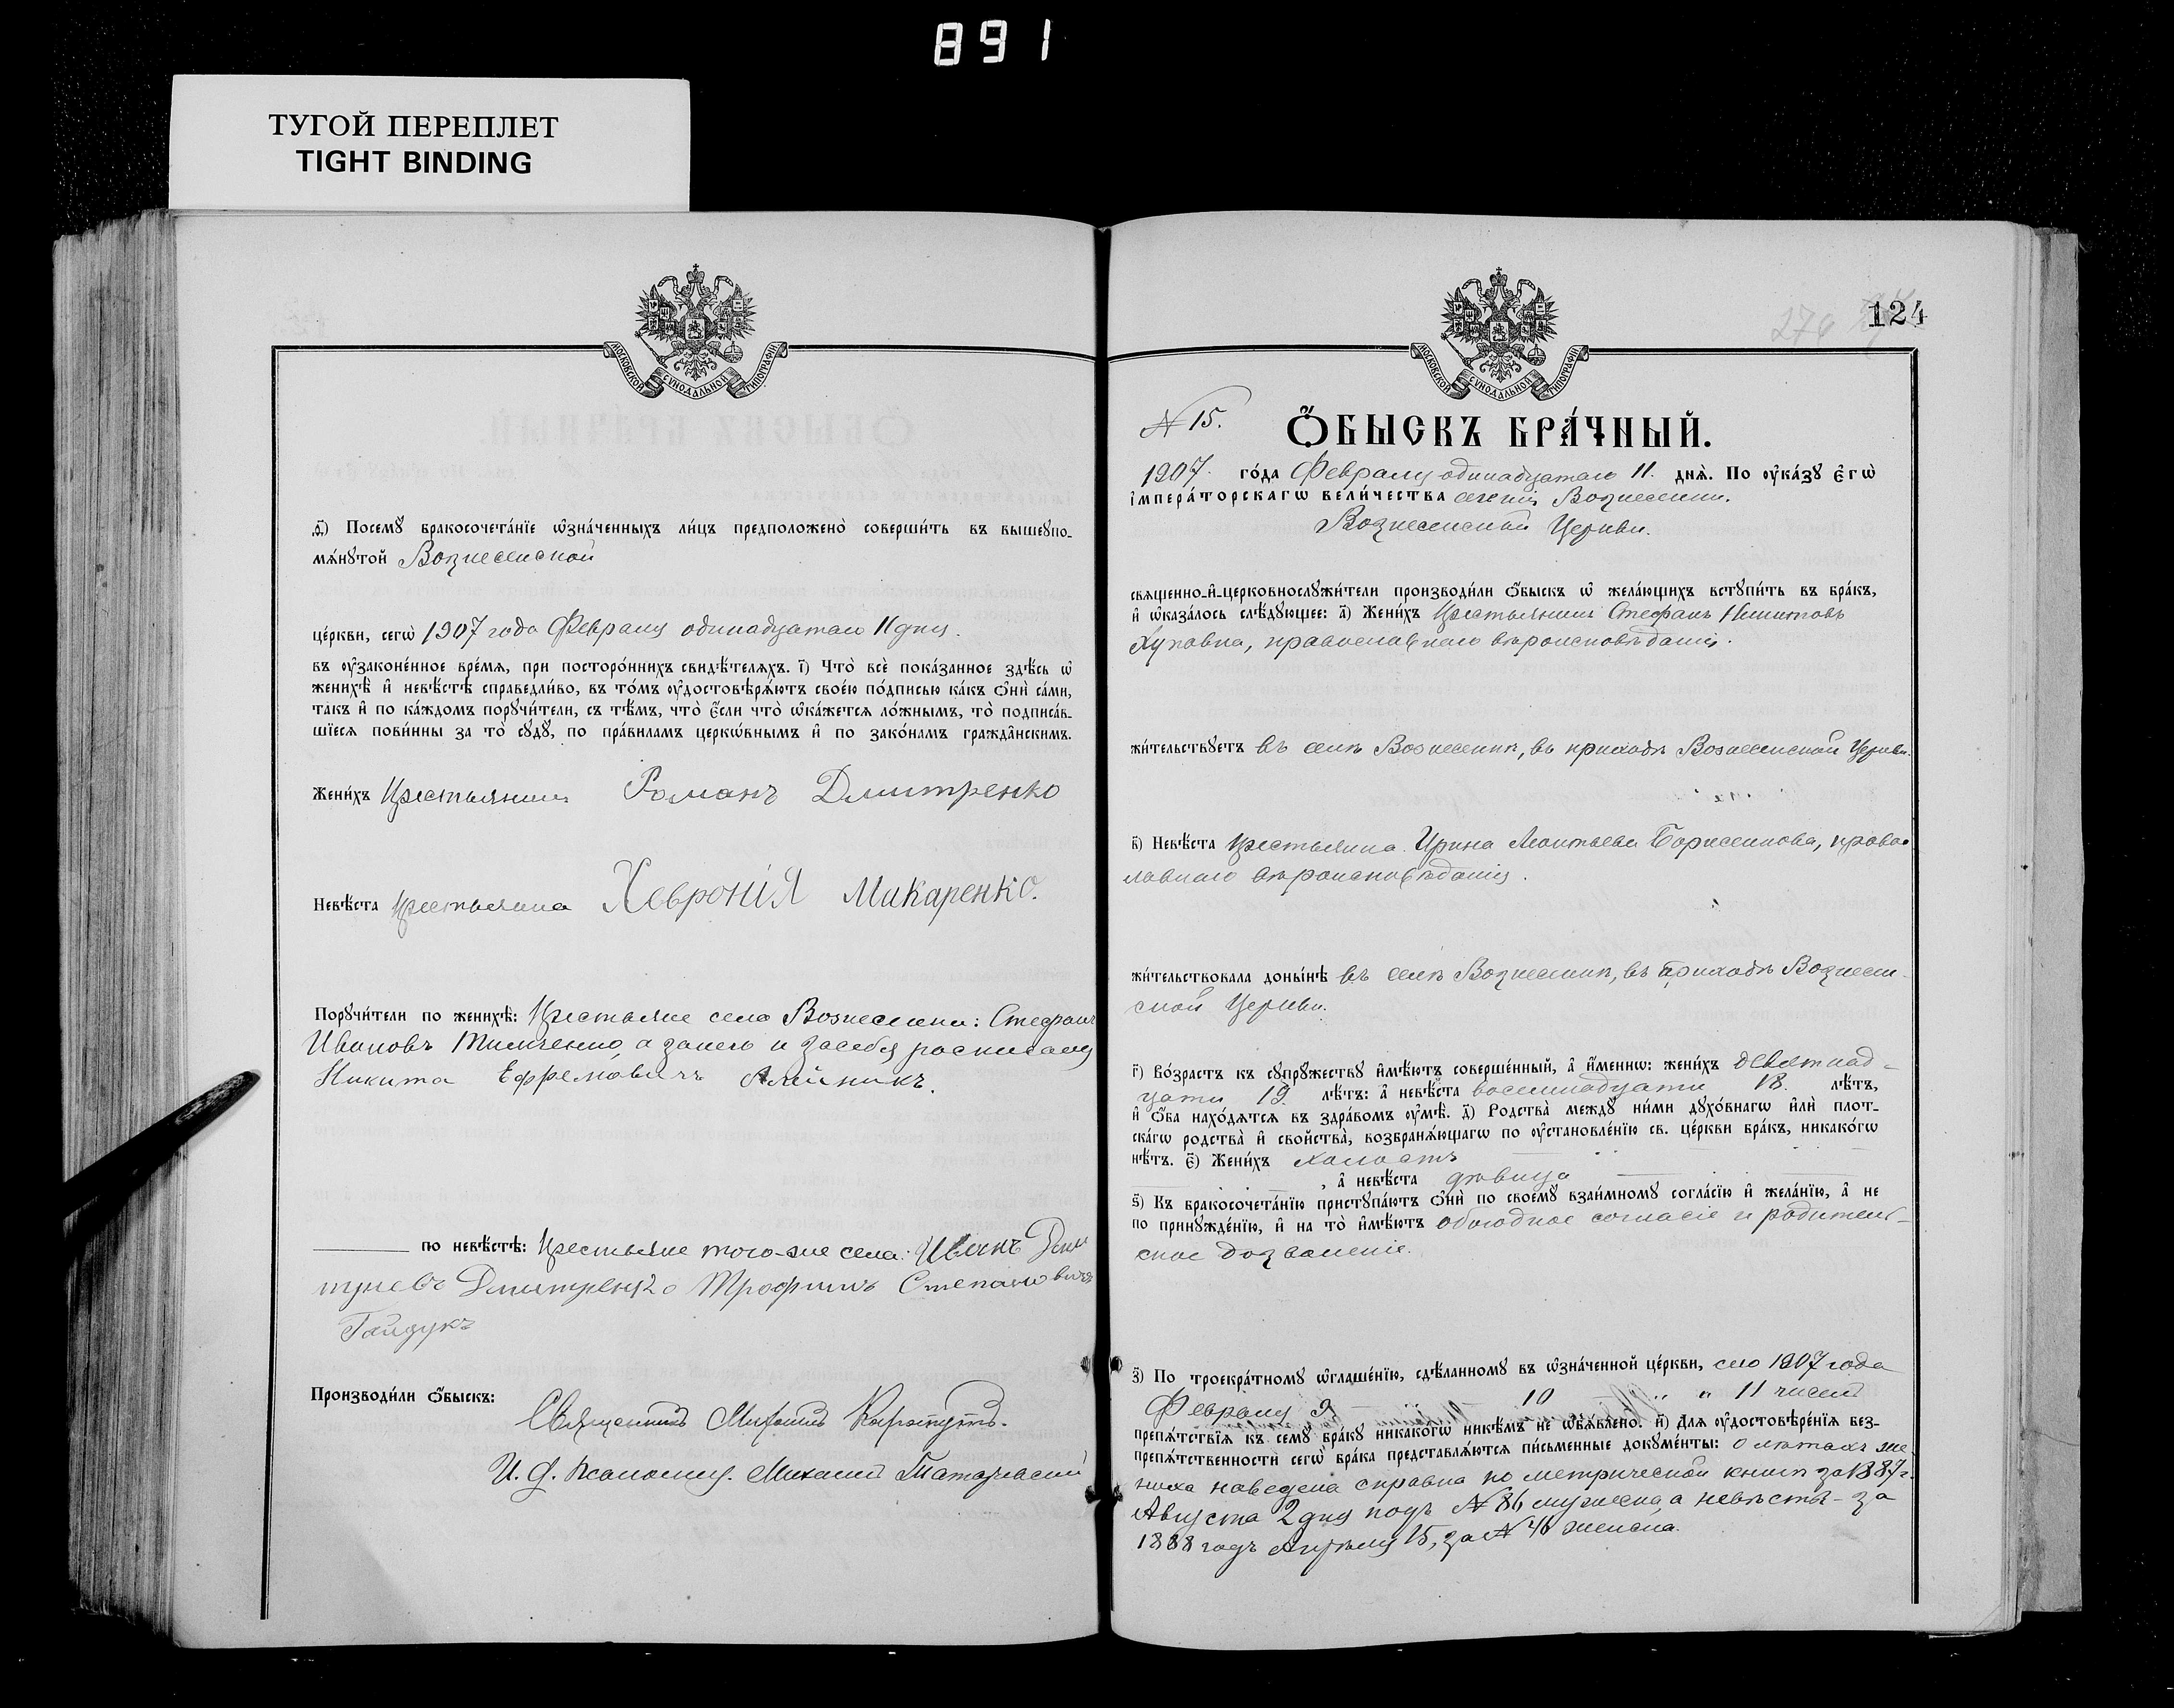 891
ТУГОЙ ПЕРЕПЛЕТ
TIGHT BINDING
МОСКОВСКОЙ СѴНОДАЛЬНОЙ ТИПОГРАФІИ
ѳ҃) Посемꙋ бракосочета́нїе ѡ҆зна́ченныхъ ли́цъ предположено̀ соверши́ть въ вышеꙋпо-
мѧ́нꙋтой Вознесенской
це́ркви, сегѡ̀ 1907 года Февраля одинадцатаго 11 дня.
въ ᲂу҆законе́нное вре́мѧ, при посторо́ннихъ свидѣ́телѧхъ. і҃) Что̀ всѐ пока́занное здѣ́сь ѡ҆
женихѣ̀ и҆ невѣ́стѣ справедли́во, въ то́мъ ᲂу҆достовѣрѧ́ютъ свое́ю по́дписью ка́къ ѻ҆нѝ са́ми,
та́къ и҆ по ка́ждомъ порꙋчи́тели, съ тѣ́мъ, что̀ є҆́сли что̀ ѡ҆ка́жетсѧ ло́жнымъ, то̀ подписа́в-
шїесѧ пови́нны за то̀ сꙋдꙋ̀, по пра́виламъ церко́внымъ и҆ по зако́намъ гражда̂нскимъ.
Жени́хъ Крестьянинъ Романъ Дмитренко
Невѣ́ста Крестьянка Хевронія Макаренко.
Порꙋчи́тели по женихѣ̀: Крестьяне села Вознесенки: Стефанъ
Ивановъ Тимченко, а занего и засебя росписался
Никита Ефремовичъ Алейникъ.
по невѣ́стѣ: Крестьяне того-же села: Иванъ
Дмитренко Трофимъ Степановичъ
Гайдукъ
Производи́ли ѻ҆́быскъ:
Священникъ Михаилъ
И. д. Псаломщ. Михаилъ
МОСКОВСКОЙ СѴНОДАЛЬНОЙ ТИПОГРАФІИ
124
N 15.
Ѻ҆́БЫСКЪ БРА́ЧНЫЙ.
1907. го́да Февраля одинадцатаго 11. днѧ̀. По ᲂу҆ка́зꙋ є҆гѡ̀
і҆мпера́торскагѡ вели́чества селенія Вознесенки.
Вознесенской Церкви.
свѧщенно-и҆-церковнослꙋжи́тели производи́ли ѻ҆́быскъ ѡ҆ жела́ющихъ встꙋпи́ть въ бра́къ,
и҆ ѡ҆каза́лось слѣ́дꙋющее: а҃) Жени́хъ Крестьянинъ Стефанъ Никитовъ
православнаго вѣроисповѣданія.
жи́тельствꙋетъ въ селѣ Вознесенкѣ, въ приходѣ Вознесенской Церкви.
в҃) Невѣ́ста крестьянка Ирина Леонтьева Борисенкова, право-
лавнаго вѣроисповѣданія.
жи́тельствовала доны́нѣ въ селѣ Вознесенкѣ, въ приходѣ Вознесен-
ской Церкви.
г҃) Во́зрастъ къ сꙋпрꙋ́жествꙋ и҆мѣ́ютъ соверше́нный, а҆ и҆́менно: жени́хъ девятнад-
цати 19. лѣ́тъ: а҆ невѣ́ста восемнадцати 18. лѣ́тъ,
и҆ ѻ҆́ба нахо́дѧтсѧ въ здра́вомъ ᲂу҆мѣ̀. д҃) Родства̀ междꙋ̀ ни́ми дꙋхо́внагѡ и҆лѝ плот-
ска́гѡ родства̀ и҆ свойства̀, возбранѧ́ющагѡ по ᲂу҆становле́нїю св. це́ркви бра́къ, никако́гѡ
нѣ́тъ. є҃) Жени́хъ холостъ
, а҆ невѣ́ста дѣвица
ѕ҃) Къ бракосочета́нїю пристꙋпа́ютъ ѻ҆нѝ по своемꙋ̀ взаи́мномꙋ согла́сїю и҆ жела́нїю, а҆ не
по принꙋжде́нїю, и҆ на то̀ и҆мѣ́ютъ обоюдное согласіе и родитель-
ское дозволеніе.
з҃) По троекра́тномꙋ ѡ҆глаше́нїю, сдѣ́ланномꙋ въ ѡ҆зна́ченной це́ркви, сего 1907 года
Февраля 9 10 „ „ 11 чиселъ
препѧ́тствїѧ къ семꙋ̀ бра́кꙋ никако́гѡ никѣ́мъ не ѡ҆б̾ѧ́влено. и҃) Длѧ ᲂу҆достовѣре́нїѧ без-
препѧ́тственности сегѡ̀ бра́ка представлѧ́ютсѧ пи́сьменные докꙋме́нты: о лѣтахъ же-
ниха наведена справка по метрической книгѣ за 1887 г.
Августа 2 дня подъ N 86 мужеска, а невѣсты - за
1888 годъ Апрѣля 15, за N 46 женска.